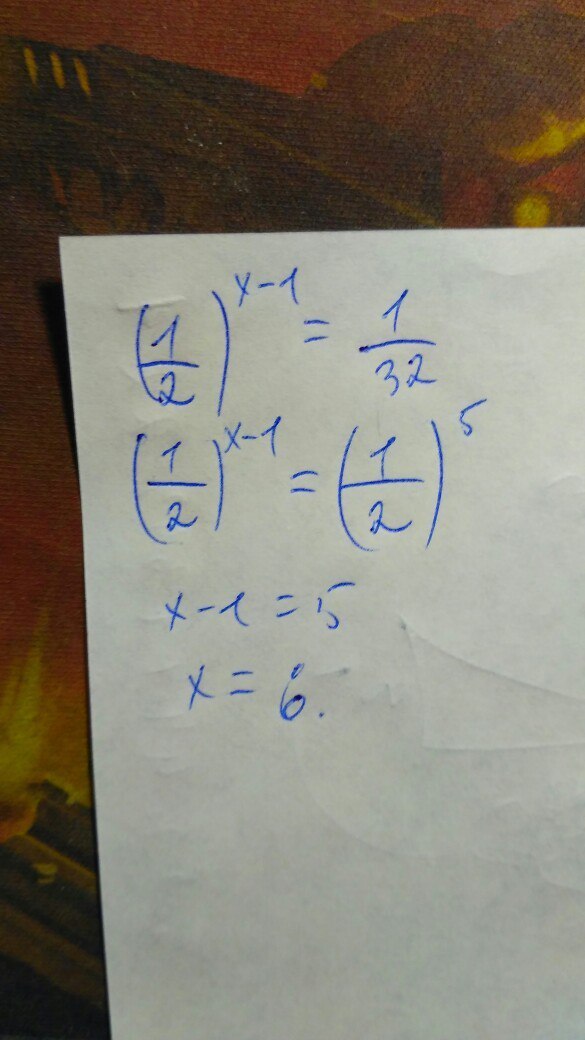 (1/2)^(x-1) = 1/32
(1/2)^(x-1) = (1/2)^5
x-1 = 5
x = 6.